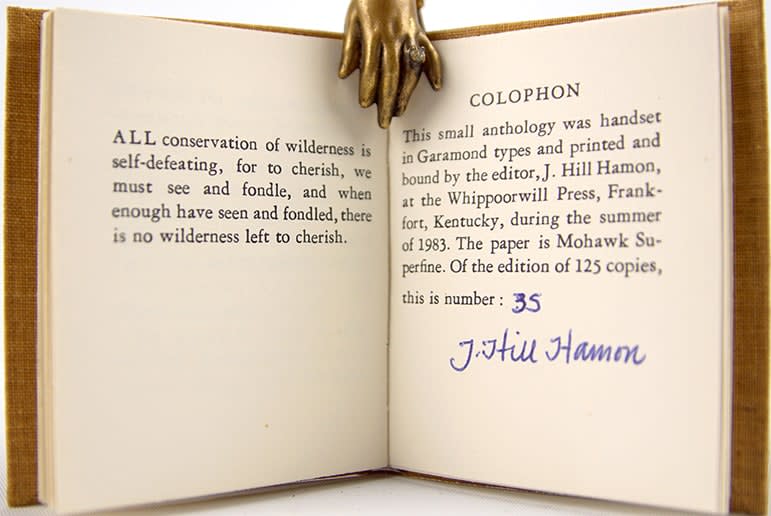 ALL conservation of wilderness is
self-defeating, for to cherish, we
must see and fondle, and when
enough have seen and fondled, there
is no wilderness left to cherish.
COLOPHON
This small anthology was handset
in Garamond types and printed and
bound by the editor, J. Hill Hamon,
at the Whippoorwill Press, Frank-
fort, Kentucky, during the summer
of 1983. The paper is Mohawk Su-
perfine. Of the edition of 125 copies,
this is number : 35
J. Hill Hamon